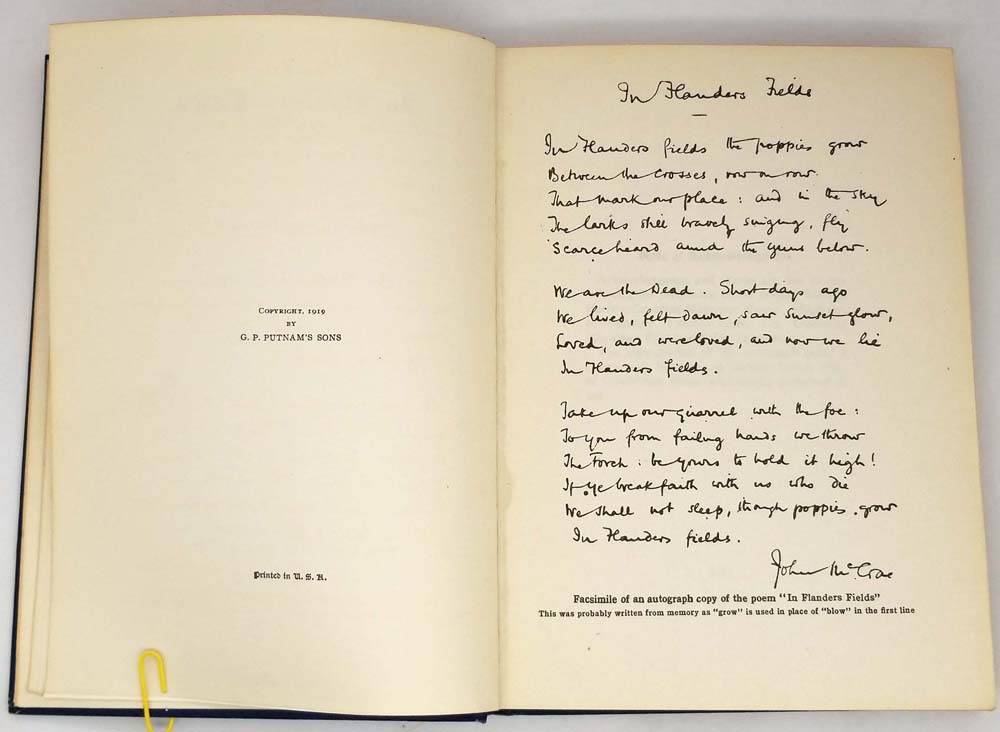 COPYRIGHT, 1919
BY
G. P. PUTNAM'S SONS
Printed in U. S. A.
In Flanders Fields
In Flanders fields the poppies grow
Between the crosses, row on row.
That mark our place : and in the sky
The larks still bravely singing, fly
Scarce heard amid the guns below.
We are the Dead. Short days ago
We lived, felt dawn, saw sunset glow,
Loved, and were loved, and now we lie
In Flanders fields.
Take up our quarrel with the foe :
To you from failing hands we throw
The Torch : be yours to hold it high!
If ye break faith with us who die
We shall not sleep, though poppies grow
In Flanders fields.
John McCrae
Facsimile of an autograph copy of the poem "In Flanders Fields"
This was probably written from memory as "grow" is used in place of "blow" in the first line